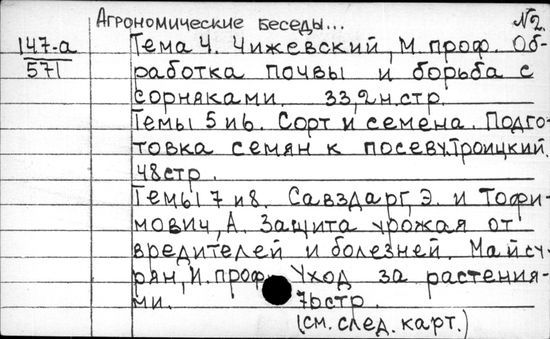 Агрономические беседы... №2.
147-а
571
Тема 4. Чижевский, М. проф. Об-
работка почвы и борьба с
сорняками. 33, 2н. стр.
Темы 5 и 6. Сорт и семена. Подго-
товка семян к посеву. Троицкий.
48 стр.
Темы 7 и 8. Савздарг, Э. и Тофи-
мович, А. Защита урожая от
вредителей и болезней. Майсу-
рян, И. проф. Уход за растения-
ми. 76 стр.
(см. след. карт.)